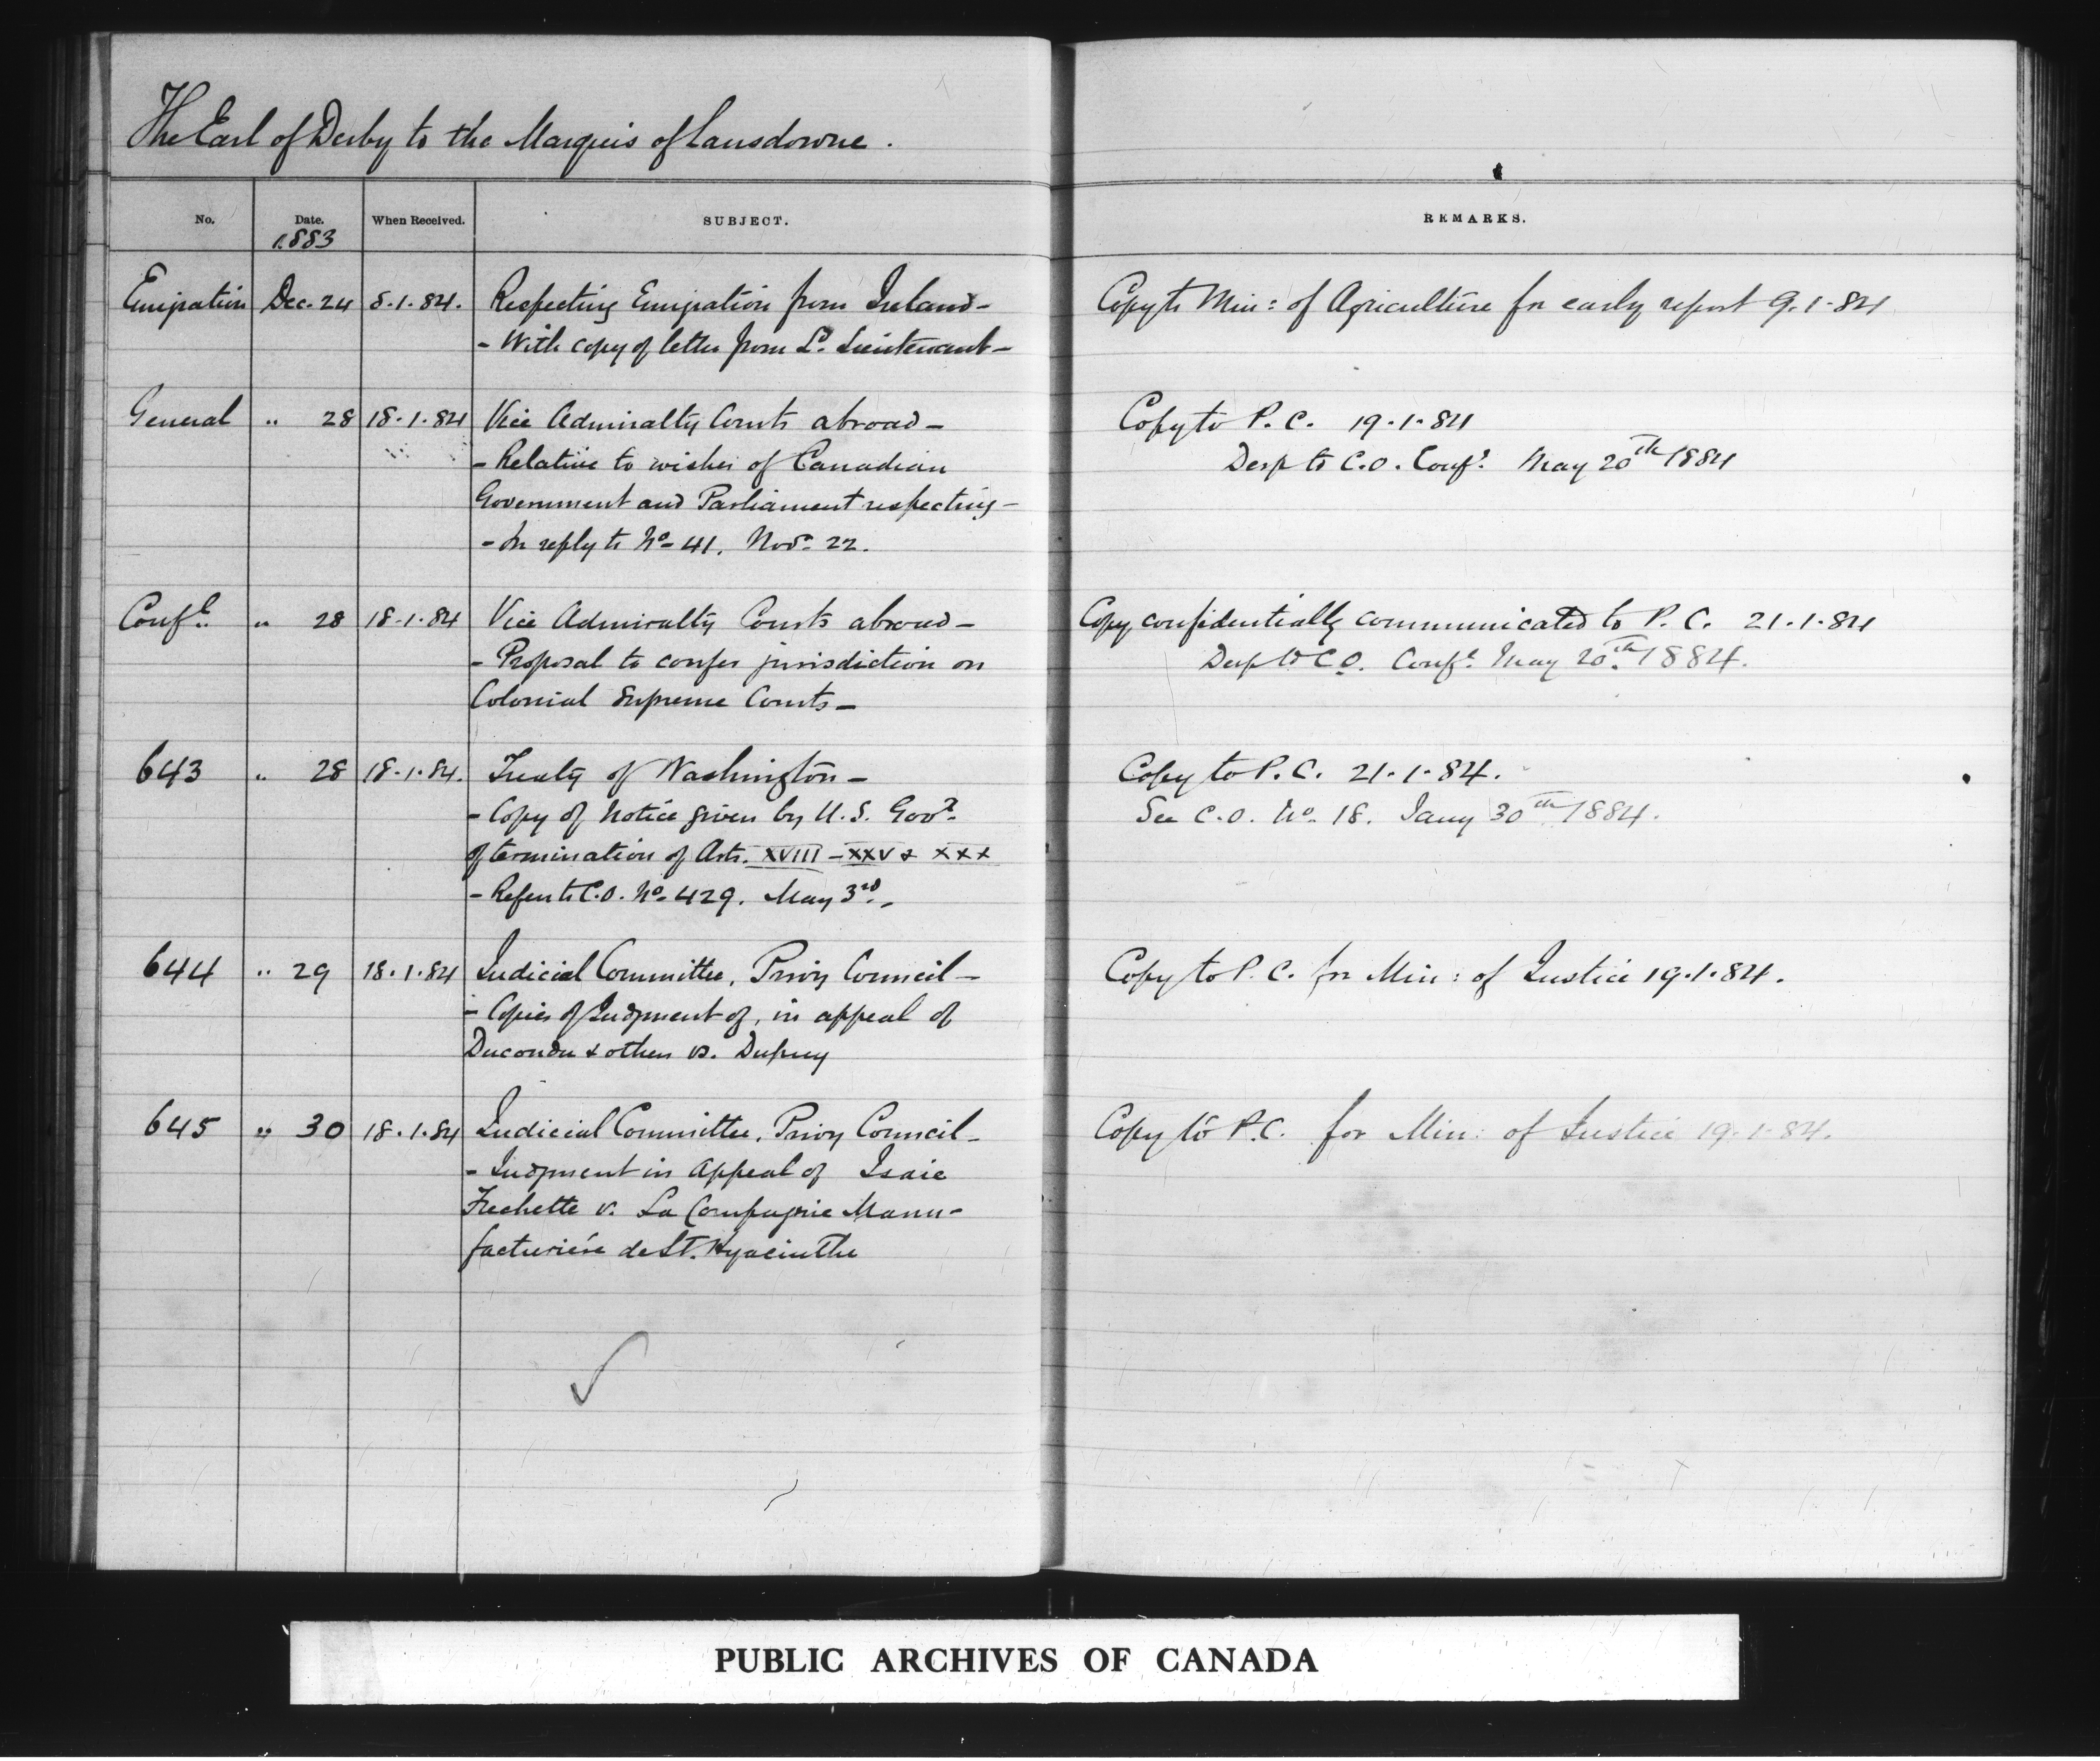 The Earl of Derby to the Marquis of Lansdowne.
No. Date. When Received. SUBJECT. REMARKS.
1883
Emigration Dec. 24 8.1.84. Respecting Emigration from Ireland- Copy to Min: of Agriculture for early report 9.1.84
- With copy of letter from Ld. Lieutenant-
General " 28 18.1.84 Vice Admiralty Courts abroad- Copy to P.C. 19.1.84
- Relative to wishes of Canadian Desp to C.O. Confl. May 20th 1884
Government and Parliament respecting-
- In reply to No- 41. Novr. 22.
Confl. " 28 18.1.84 Vice Admiralty Courts abroad- Copy confidentially communicated to P.C. 21.1.84
- Proposal to confer jurisdiction on Desp to C.O. Confl. May 20th 1884.
Colonial Supreme Courts-
643 " 28 18.1.84. Treaty of Washington- Copy to P.C. 21.1.84.
- Copy of Notice given by U.S. Govt. See C.O. No. 18. Jany 30th 1884.
of termination of Arts. XVIII - XXV & XXX
- Refers to C.O. No- 429. May 3rd.-
644 " 29 18.1.84 Judicial Committee, Privy Council- Copy to P.C. for Min: of Justice 19.1.84.
- Copies of Judgment of, in appeal of
Ducondu & others vs. Dupuy
645 " 30 18.1.84 Judicial Committee, Privy Council- Copy to P.C. for Min: of Justice 19.1.84.
- Judgment in Appeal of Isaie
Frechette v. La Compagnie Manu-
facturière de St. Hyacinthe
PUBLIC ARCHIVES OF CANADA